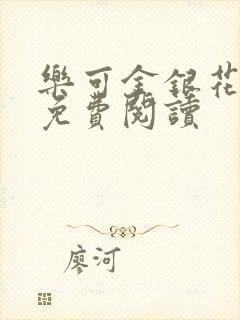 樂可金銀花
免費閱讀
廖河